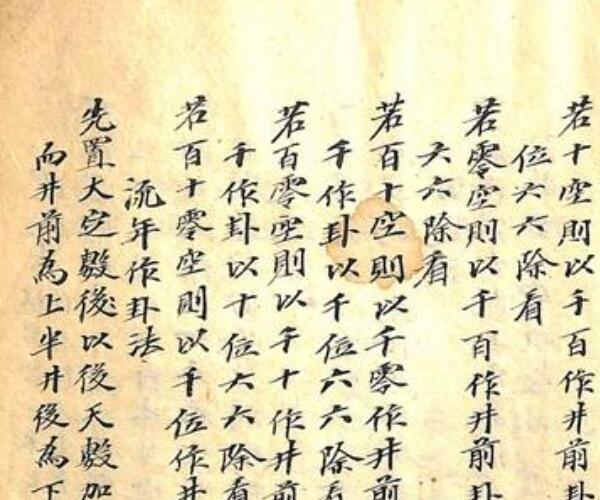 若十空則以千百作卅前卦
位六六除看
若零空則以千百作卅前卦
六六除看
若百十空則以千零作卅前
千作卦以千位六六除看
若百零空則以千十作卅前
千作卦以十位六六除看
若百十零空則以千位作卅
流年作卦法
先置大定數後以後天數加
而卅前為上半卅後為下